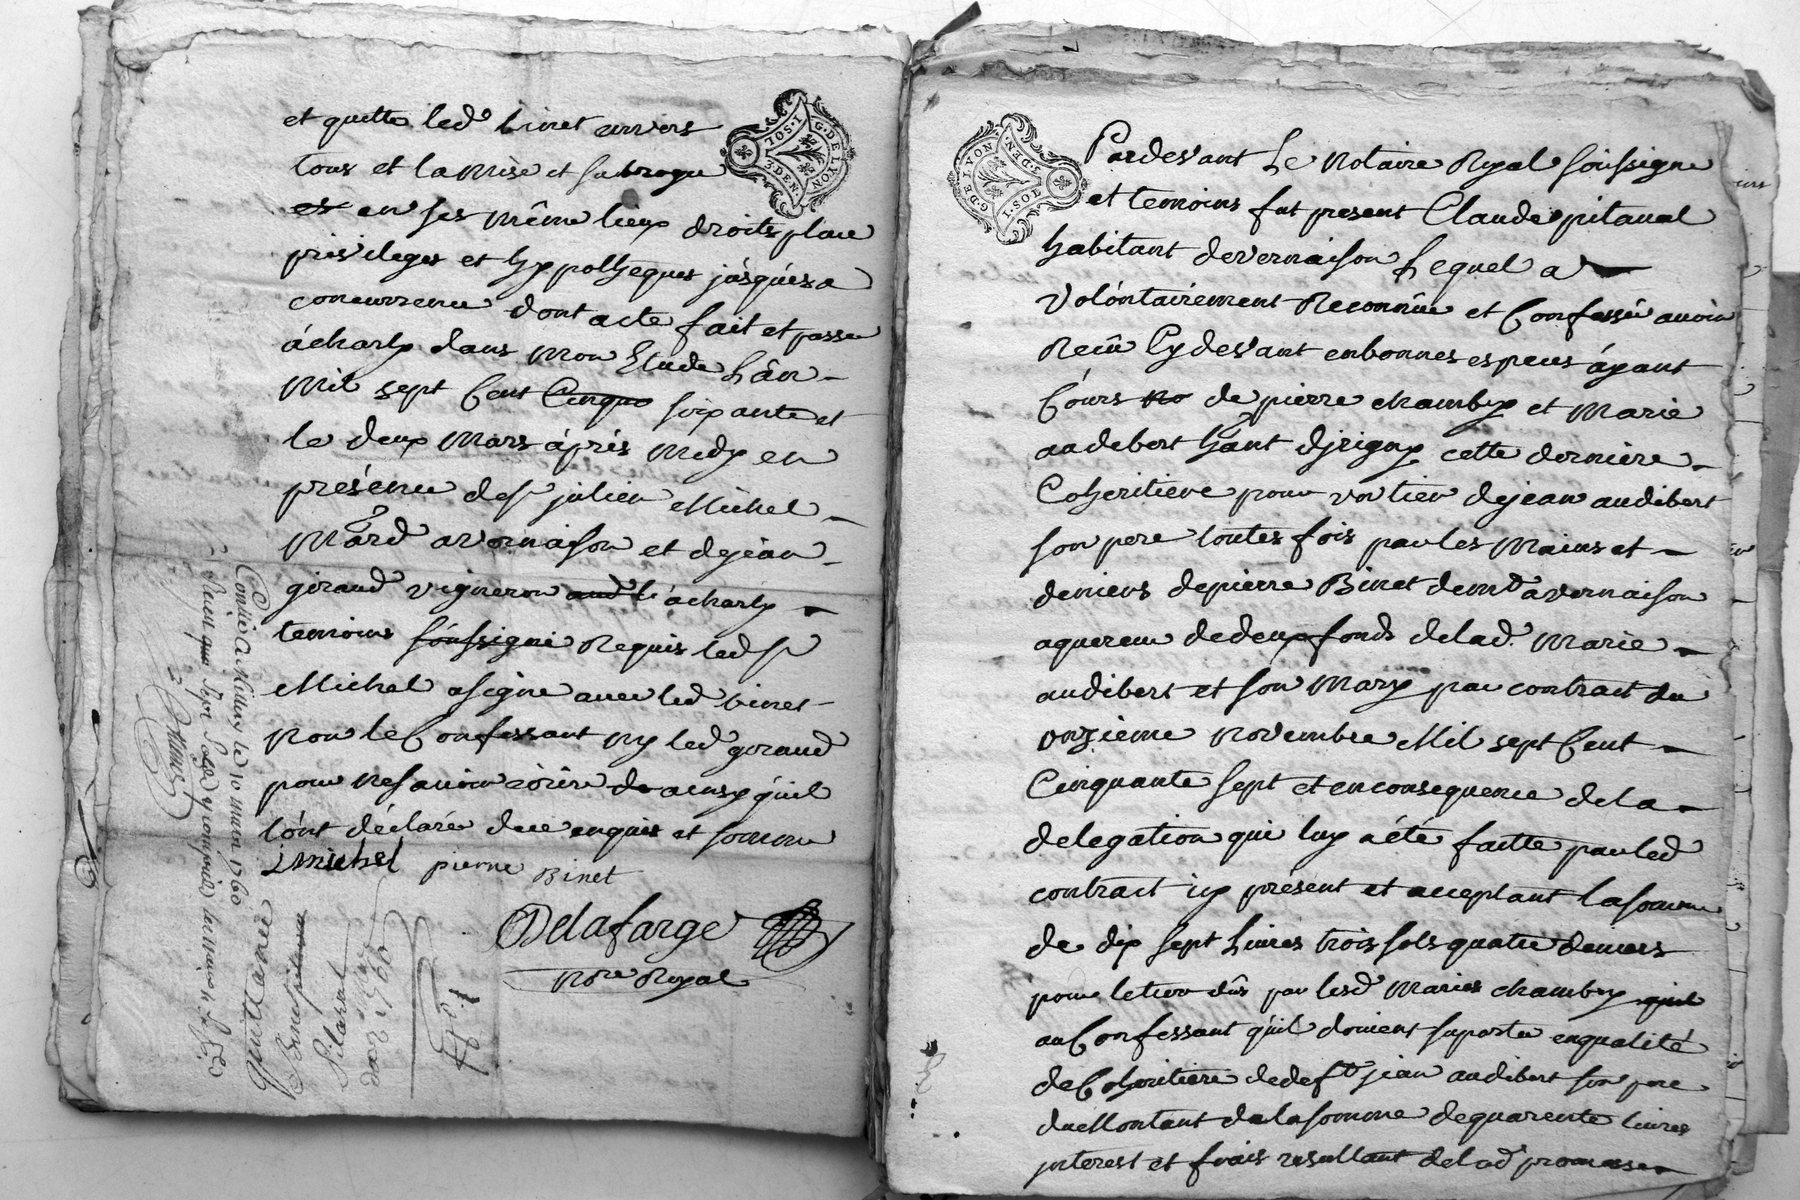 et quitte led.t binet envers
tous et la mise et subroge
et en ses même lieux droits place
privileges et hypotheques jusques a
concurrence dont acte fait et passé
á charly dans mon Etude L'ân
mil sept Cent Cinqu soixante et
le deux mars áprés midy en
présence de sr julien Michel
Mard a vernaison et de jean
giraud vigneron aud. l á charly
temoins soussigné Requis led sr
Michel a signé avec led binet
non le Confessant ny led giraud
pour ne savoir écrire de ainsy qu'il
l'ont déclaré de ce enquis et sommé
j michel pierre Binet
Delafarge
Nore Royal
Conlé A Millery le 10 mars 1760
quittance
Binet
Pitaval
du 2 mars
1760
G. DE LYON
1. SOL
3 DEN.
G. DE LYON
1. SOL
3. DEN.
Pardevant Le Notaire Royal soussigné
et temoins fut present Claude pitaval
habitant de vernaison Lequel a
Volóntairement Reconnû et Confessé avoir
Recû Cy devant en bonnes especes áyant
Cóurs no de pierre chamby et Marie
audebert hant d'jrigny cette derniere
Coheritiere pour un tier de jean audibert
son pere toutes fois par les mains et
deniers de pierre Binet demt a vernaison
aquereur de deux fonds de lad. Marie
audibert et son Mary par contract du
onzieme novembre Mil sept Cent
Cinquante sept et en consequence de la
delegation qui luy a été faitte par led
contract icy présent et acceptant la somme
de dix sept Livres trois sols quatre deniers
pour le tier dûs par lesd Mariés chamby quil
au Confessant qu'il doivent suporter en qualité
de Coheritiere de deft jean audibert son pere
du Montant de la somme de quarente livres
jnterest et frais resultant de lad promesse